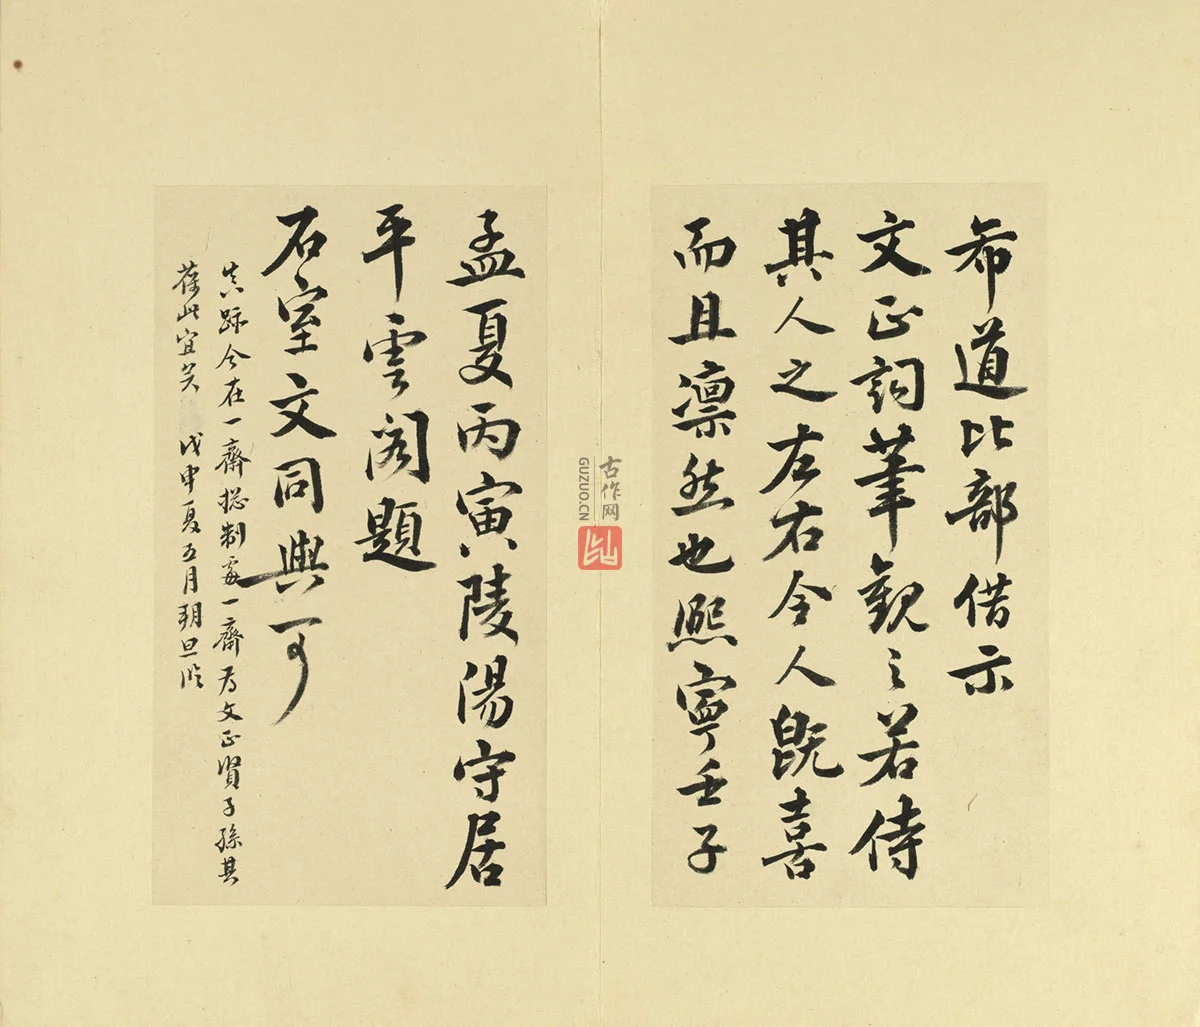 希道比部借示
文正詞筆觀之若侍
其人之左右令人既喜
而且凛然也熙寧壬子
孟夏丙寅陵陽守居
平雲閣題
石室文同與可
真跡今在一齋總制處一齋為文正賢子孫其
葆此宜矣 戊申夏五月朔旦臨
古作网
GUZUO.CN